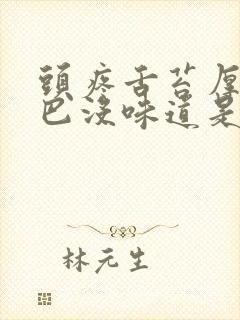 頭疼舌苔厚
巴沒味道是
林元生